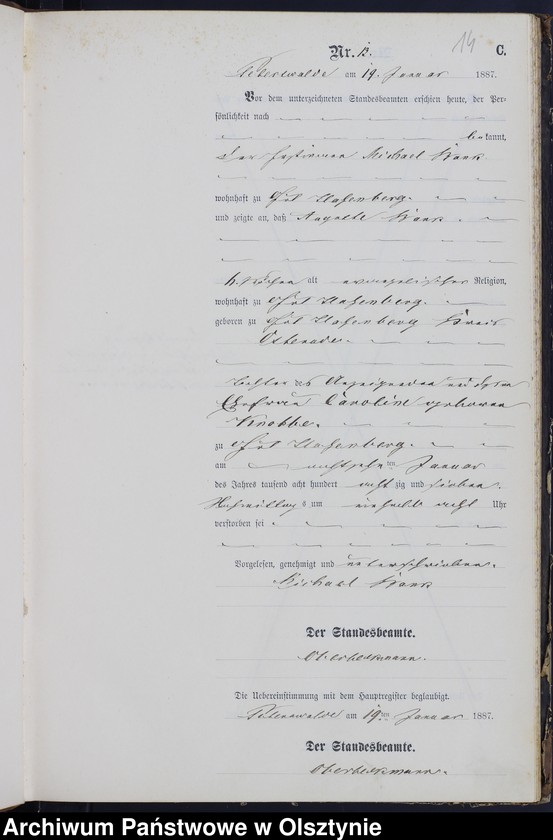 14
Nr. 12. C.
Peterswalde am 19. Januar 1887.
Vor dem unterzeichneten Standesbeamten erschien heute, der Per-
sönlichkeit nach
bekannt,
der Michael
wohnhaft zu Gut
und zeigte an, daß Auguste
alt evangelischer Religion,
wohnhaft zu Gut
geboren zu Gut Kreis
Osterode
Tochter des Anzeigenden und dessen
Ehefrau Caroline geborenen
Knobbe.
zu Gut
am achtzehnten Januar
des Jahres tausend acht hundert achtzig und sieben
Nachmittags um acht Uhr
verstorben sei
Vorgelesen, genehmigt und unterschrieben.
Michael
Der Standesbeamte.
Oberbeckmann.
Die Uebereinstimmung mit dem Hauptregister beglaubigt.
Peterswalde am 19ten Januar 1887.
Der Standesbeamte.
Oberbeckmann.
Archiwum Państwowe w Olsztynie